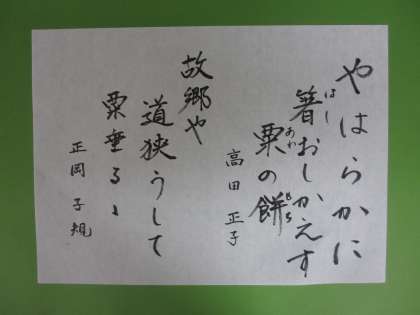 やはらかに
箸おしかえす
はし
粟の餅
あわ
もち
高田正子
故郷や
道狭うして
粟垂るゝ
正岡子規